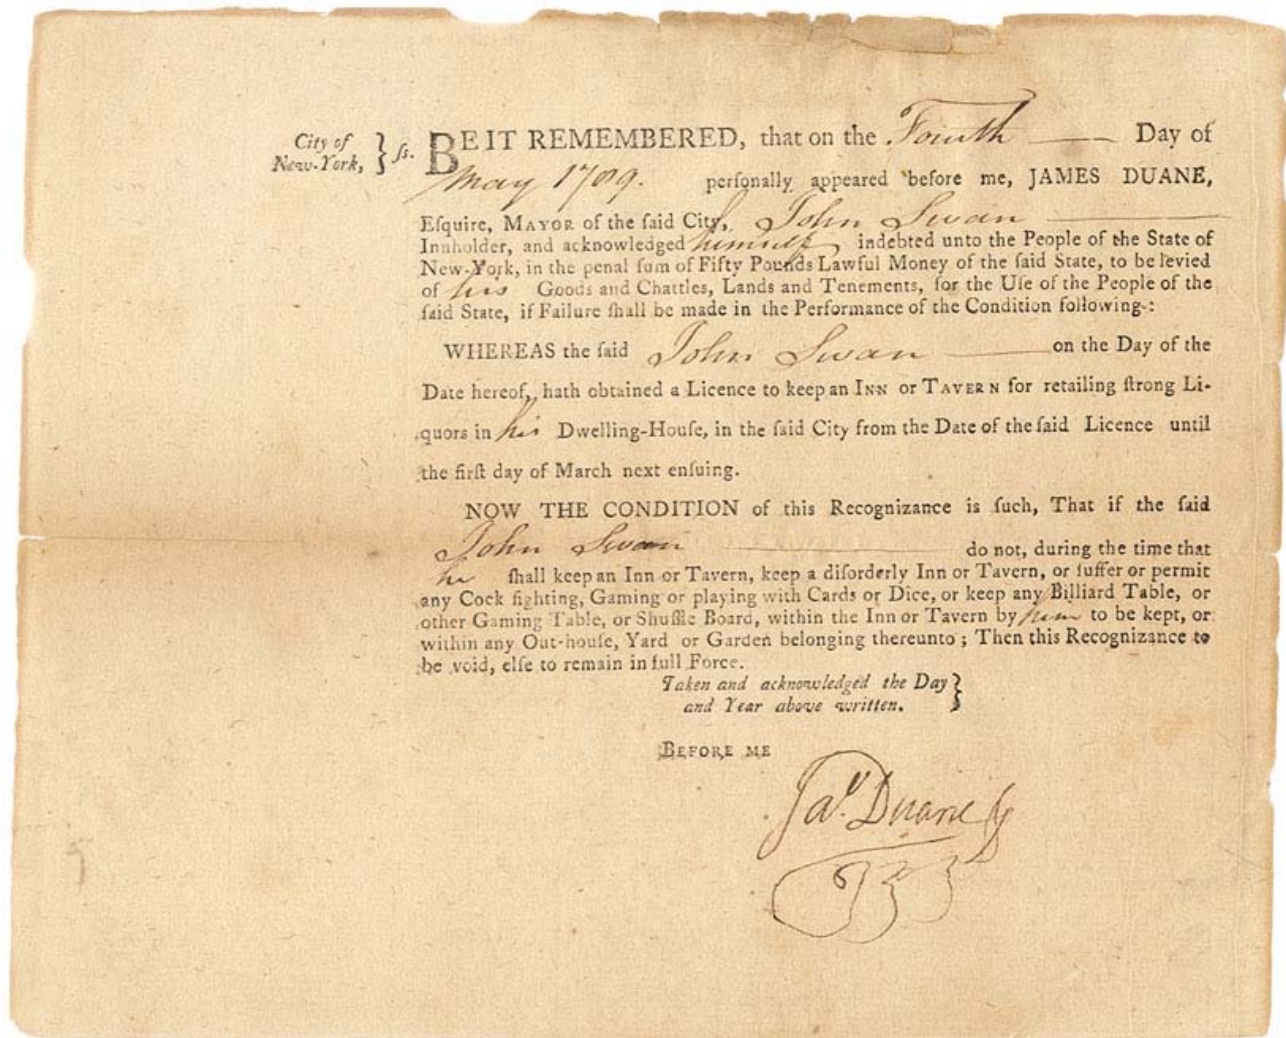 City of
New-York, } ſs.
BE IT REMEMBERED, that on the Fourth —— Day of
May 1789. perſonally appeared before me, JAMES DUANE,
Eſquire, MAYOR of the ſaid City, John Swan ——
Innholder, and acknowledged himself indebted unto the People of the State of
New-York, in the penal ſum of Fifty Pounds Lawful Money of the ſaid State, to be levied
of his Goods and Chattles, Lands and Tenements, for the Uſe of the People of the
ſaid State, if Failure ſhall be made in the Performance of the Condition following:
WHEREAS the ſaid John Swan —— on the Day of the
Date hereof, hath obtained a Licence to keep an INN or TAVERN for retailing ſtrong Li-
quors in his Dwelling-Houſe, in the ſaid City from the Date of the ſaid Licence until
the firſt day of March next enſuing.
NOW THE CONDITION of this Recognizance is ſuch, That if the ſaid
John Swan —— do not, during the time that
he ſhall keep an Inn or Tavern, keep a diſorderly Inn or Tavern, or ſuffer or permit
any Cock fighting, Gaming or playing with Cards or Dice, or keep any Billiard Table, or
other Gaming Table, or Shuffle Board, within the Inn or Tavern by him to be kept, or
within any Out-houſe, Yard or Garden belonging thereunto; Then this Recognizance to
be void, elſe to remain in full Force.
Taken and acknowledged the Day }
and Year above written.
BEFORE ME
Jaˢ. Duane